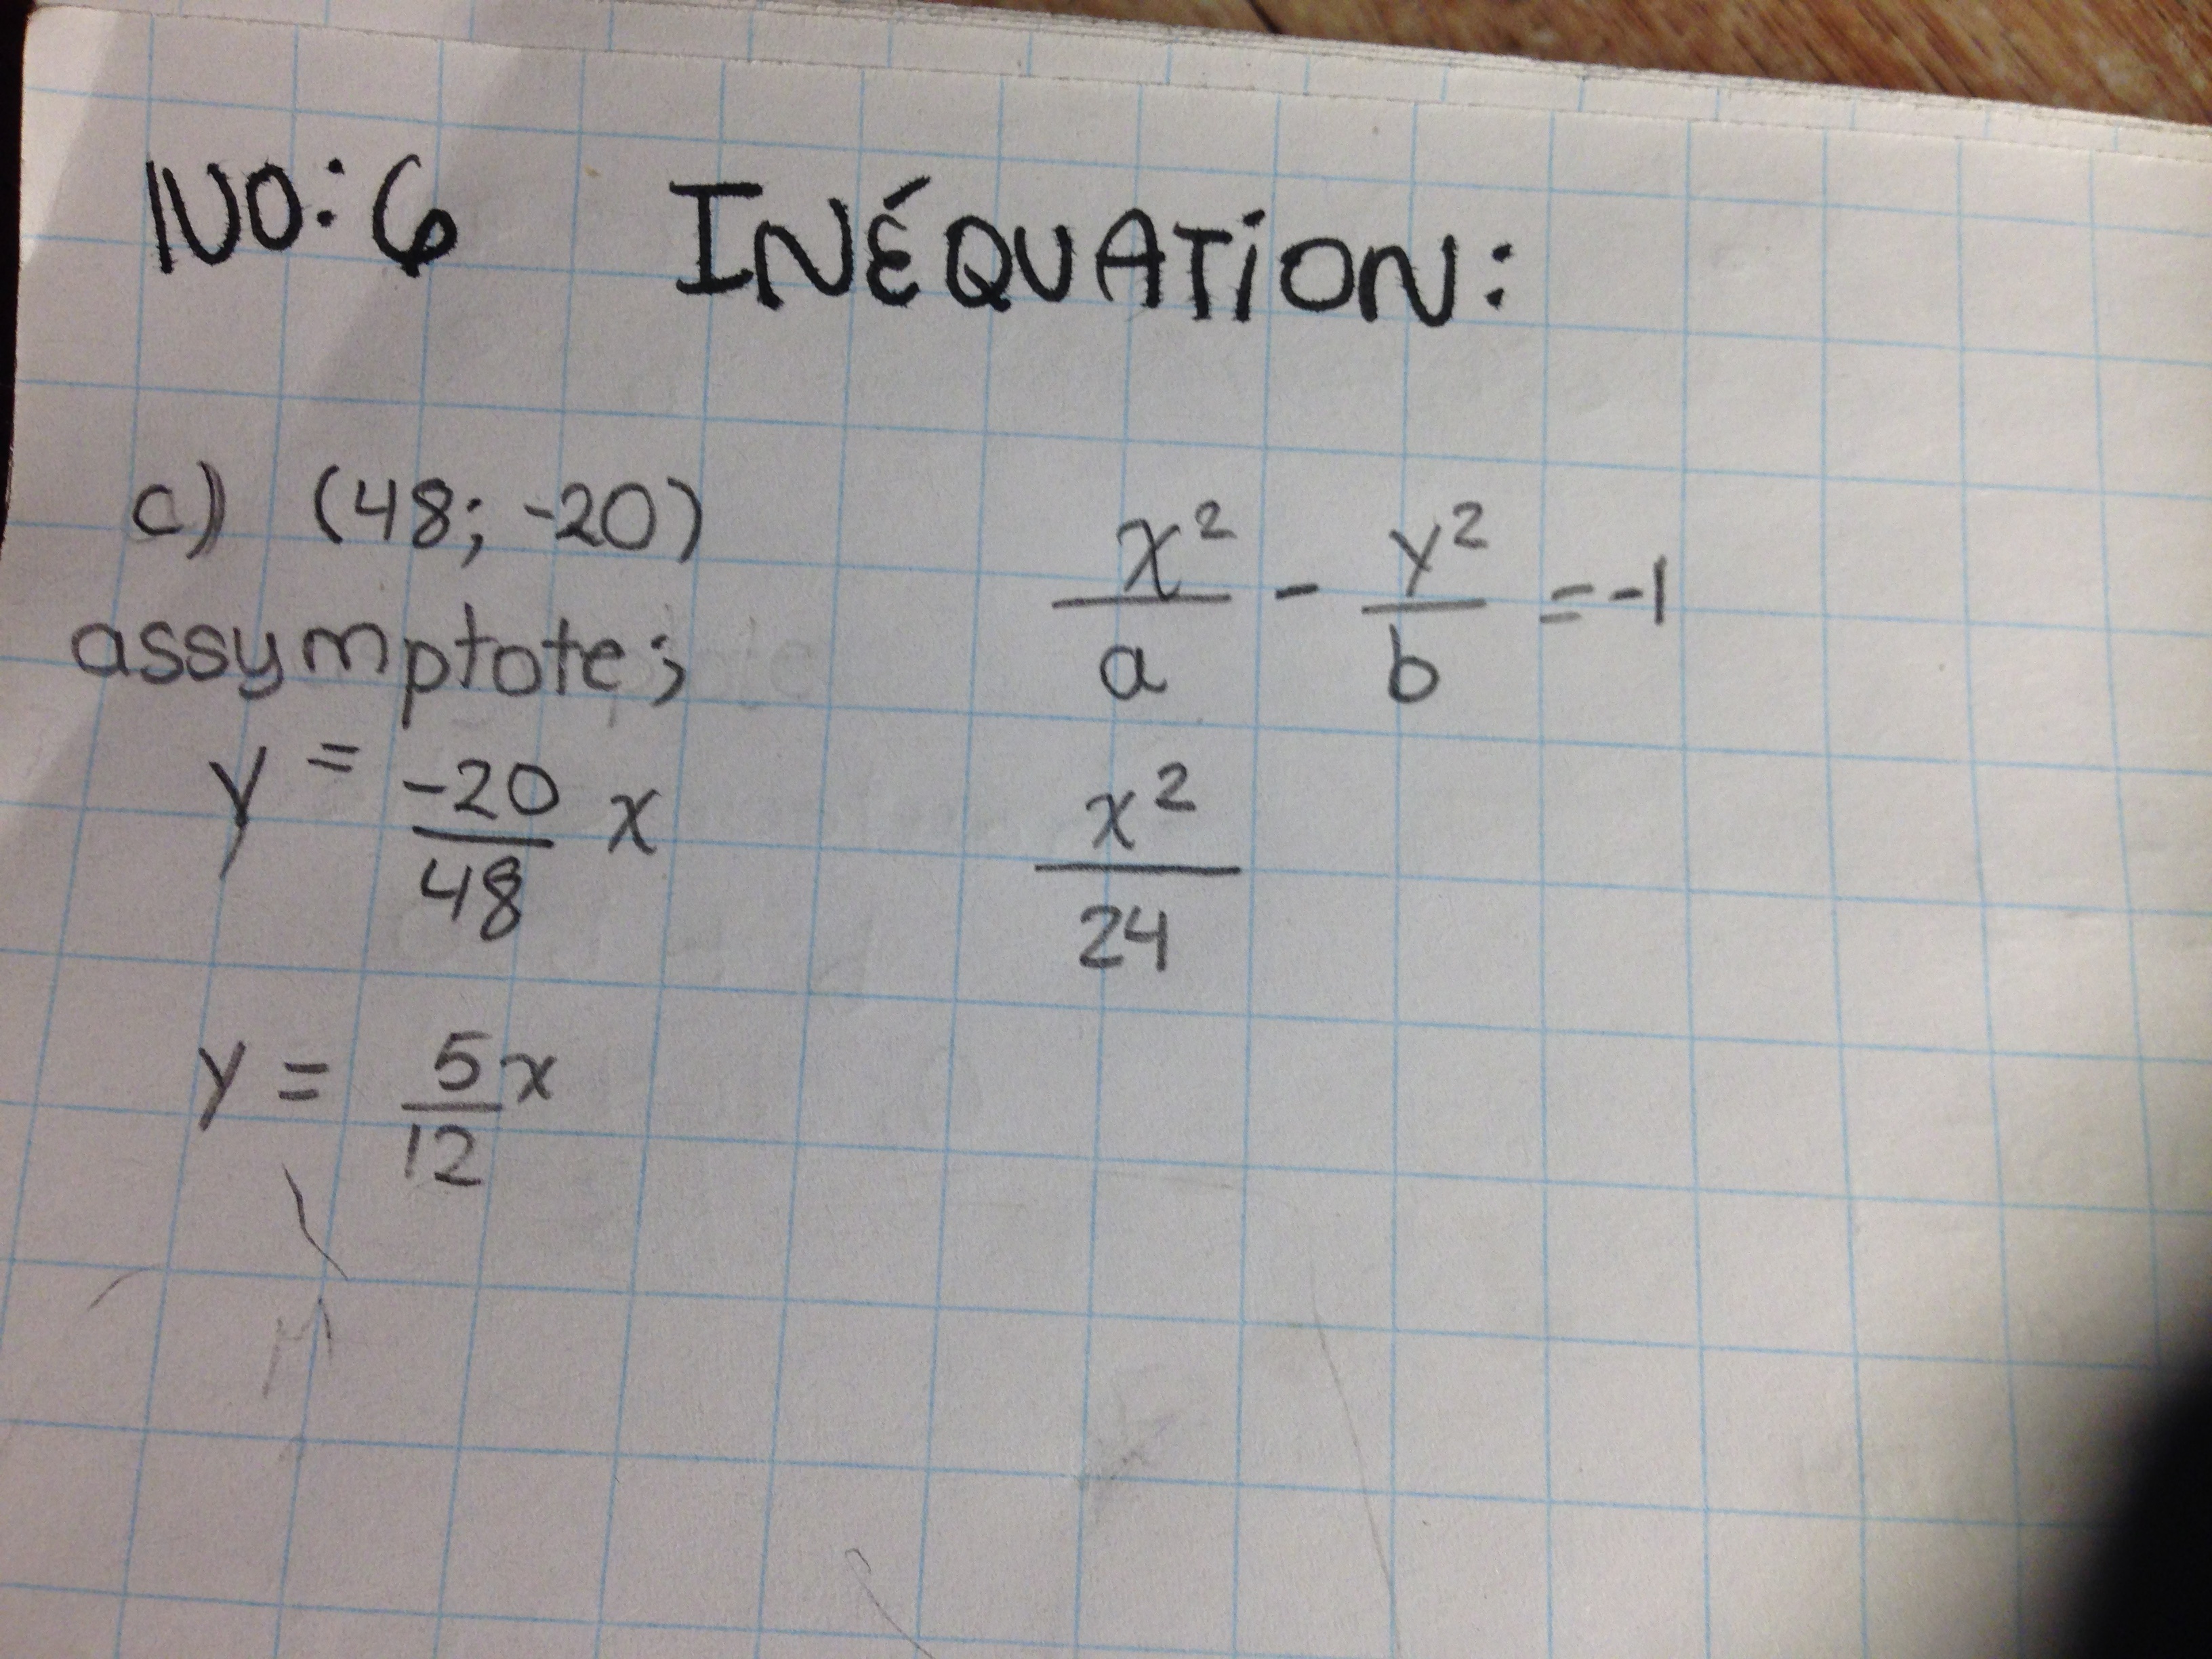 NO: 6 INÉQUATiON:
c) (48; -20)
assymptote;
y = -20/48 x
y = 5/12 x
x²/a - y²/b = -1
x²/24